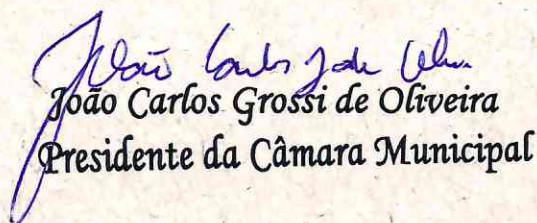 João Carlos G. de Oliv.
João Carlos Grossi de Oliveira
Presidente da Câmara Municipal